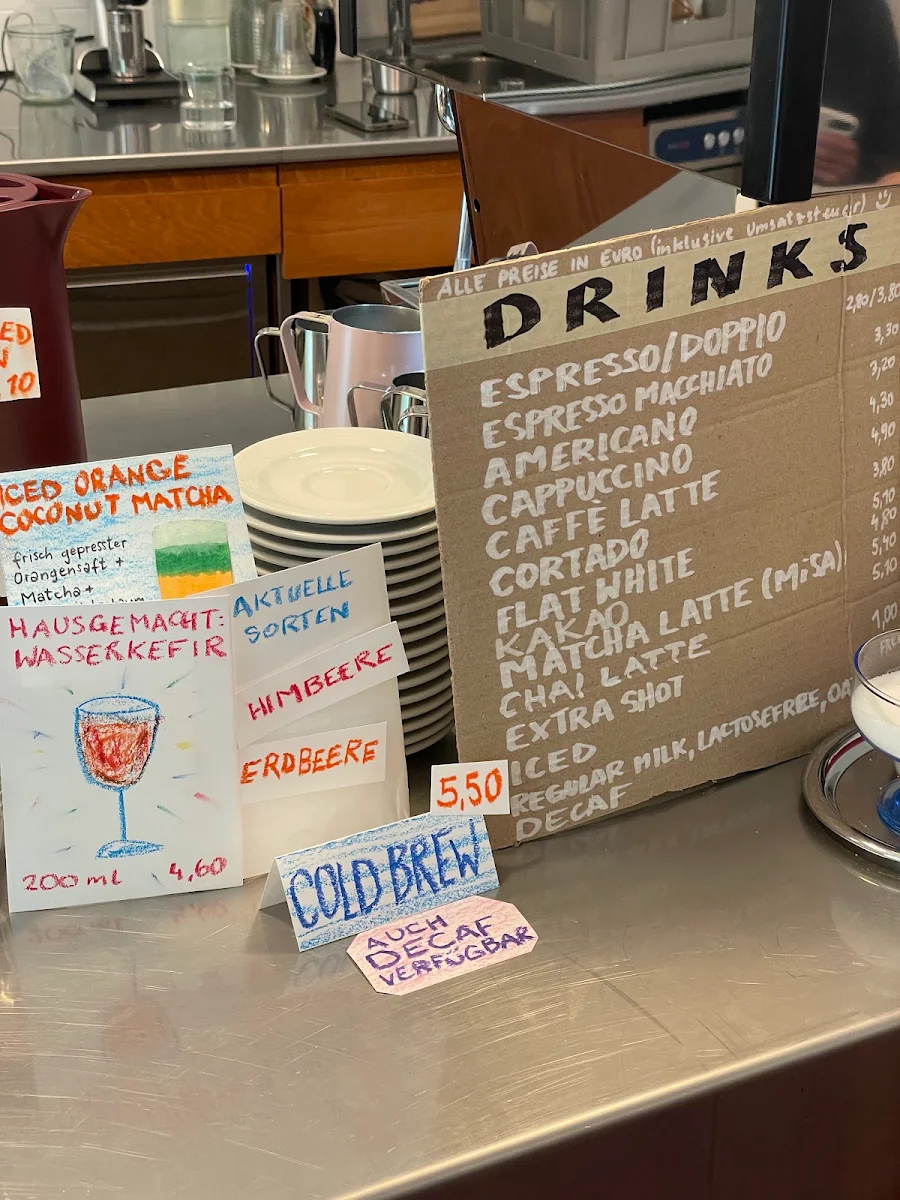 ALLE PREISE IN EURO (inklusive Umsatzsteuer)
DRINKS
ESPRESSO/DOPPIO 2,80/3,80
ESPRESSO MACCHIATO 3,30
AMERICANO 3,20
CAPPUCCINO 4,30
CAFFE LATTE 4,90
CORTADO 3,80
FLAT WHITE 5,10
KAKAO 4,80
MATCHA LATTE (MiSA) 5,40
CHAI LATTE 5,10
EXTRA SHOT 1,00
ICED
REGULAR MILK, LACTOSEFREE,
DECAF
10
ICED ORANGE
COCONUT MATCHA
frisch gepresster
Orangensaft +
Matcha+
HAUSGEMACHT:
WASSERKEFIR
200 ml 4,60
AKTUELLE
SORTEN
HIMBEERE
ERDBEERE
5,50
COLD BREW
AUCH
DECAF
VERFÜGBAR